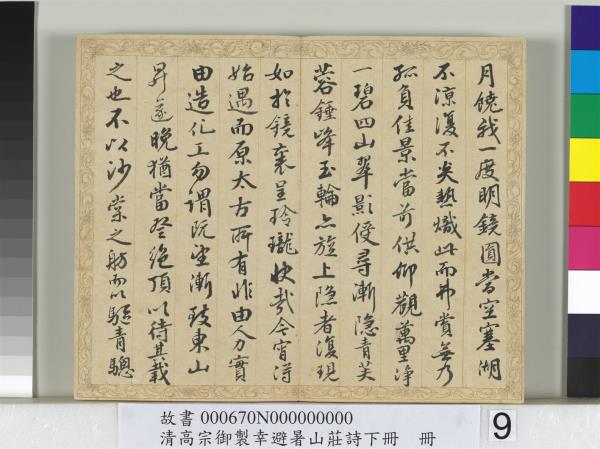 月饒我一度明鏡圓當空塞湖
不涼復不炎熱熾此而弗賞無乃
孤負佳景當前供仰觀萬里淨
一碧四山翠影侵尋漸隱青芙
蓉錘峰玉輪亦旋上隱者復現
如於鏡裏呈玲瓏快哉今宵得
始遇而原太古所有非由人力實
由造化工勿謂既望漸致東山
昇遂晚猶當登絕頂以待其載
之也不以沙棠之舫而以驅青驄
故書 000670N000000000
清高宗御製幸避暑山莊詩下冊 冊
9